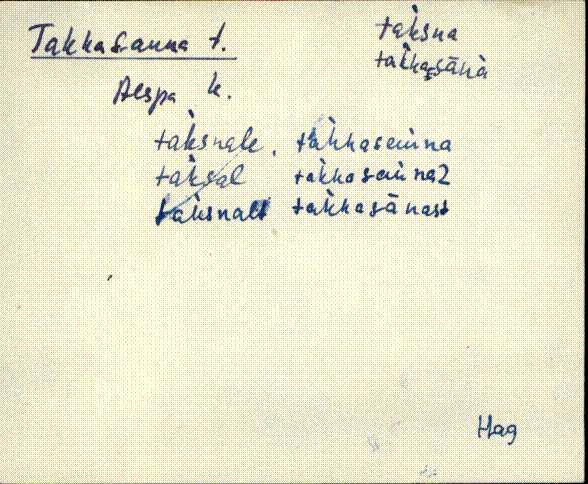 Takkasauna t.
tàksna
tàkkasānà
Aespa k.
tàksnale, tàkkasauna
tàksal takkasauna2
tàksnalt takkasānast
Hag